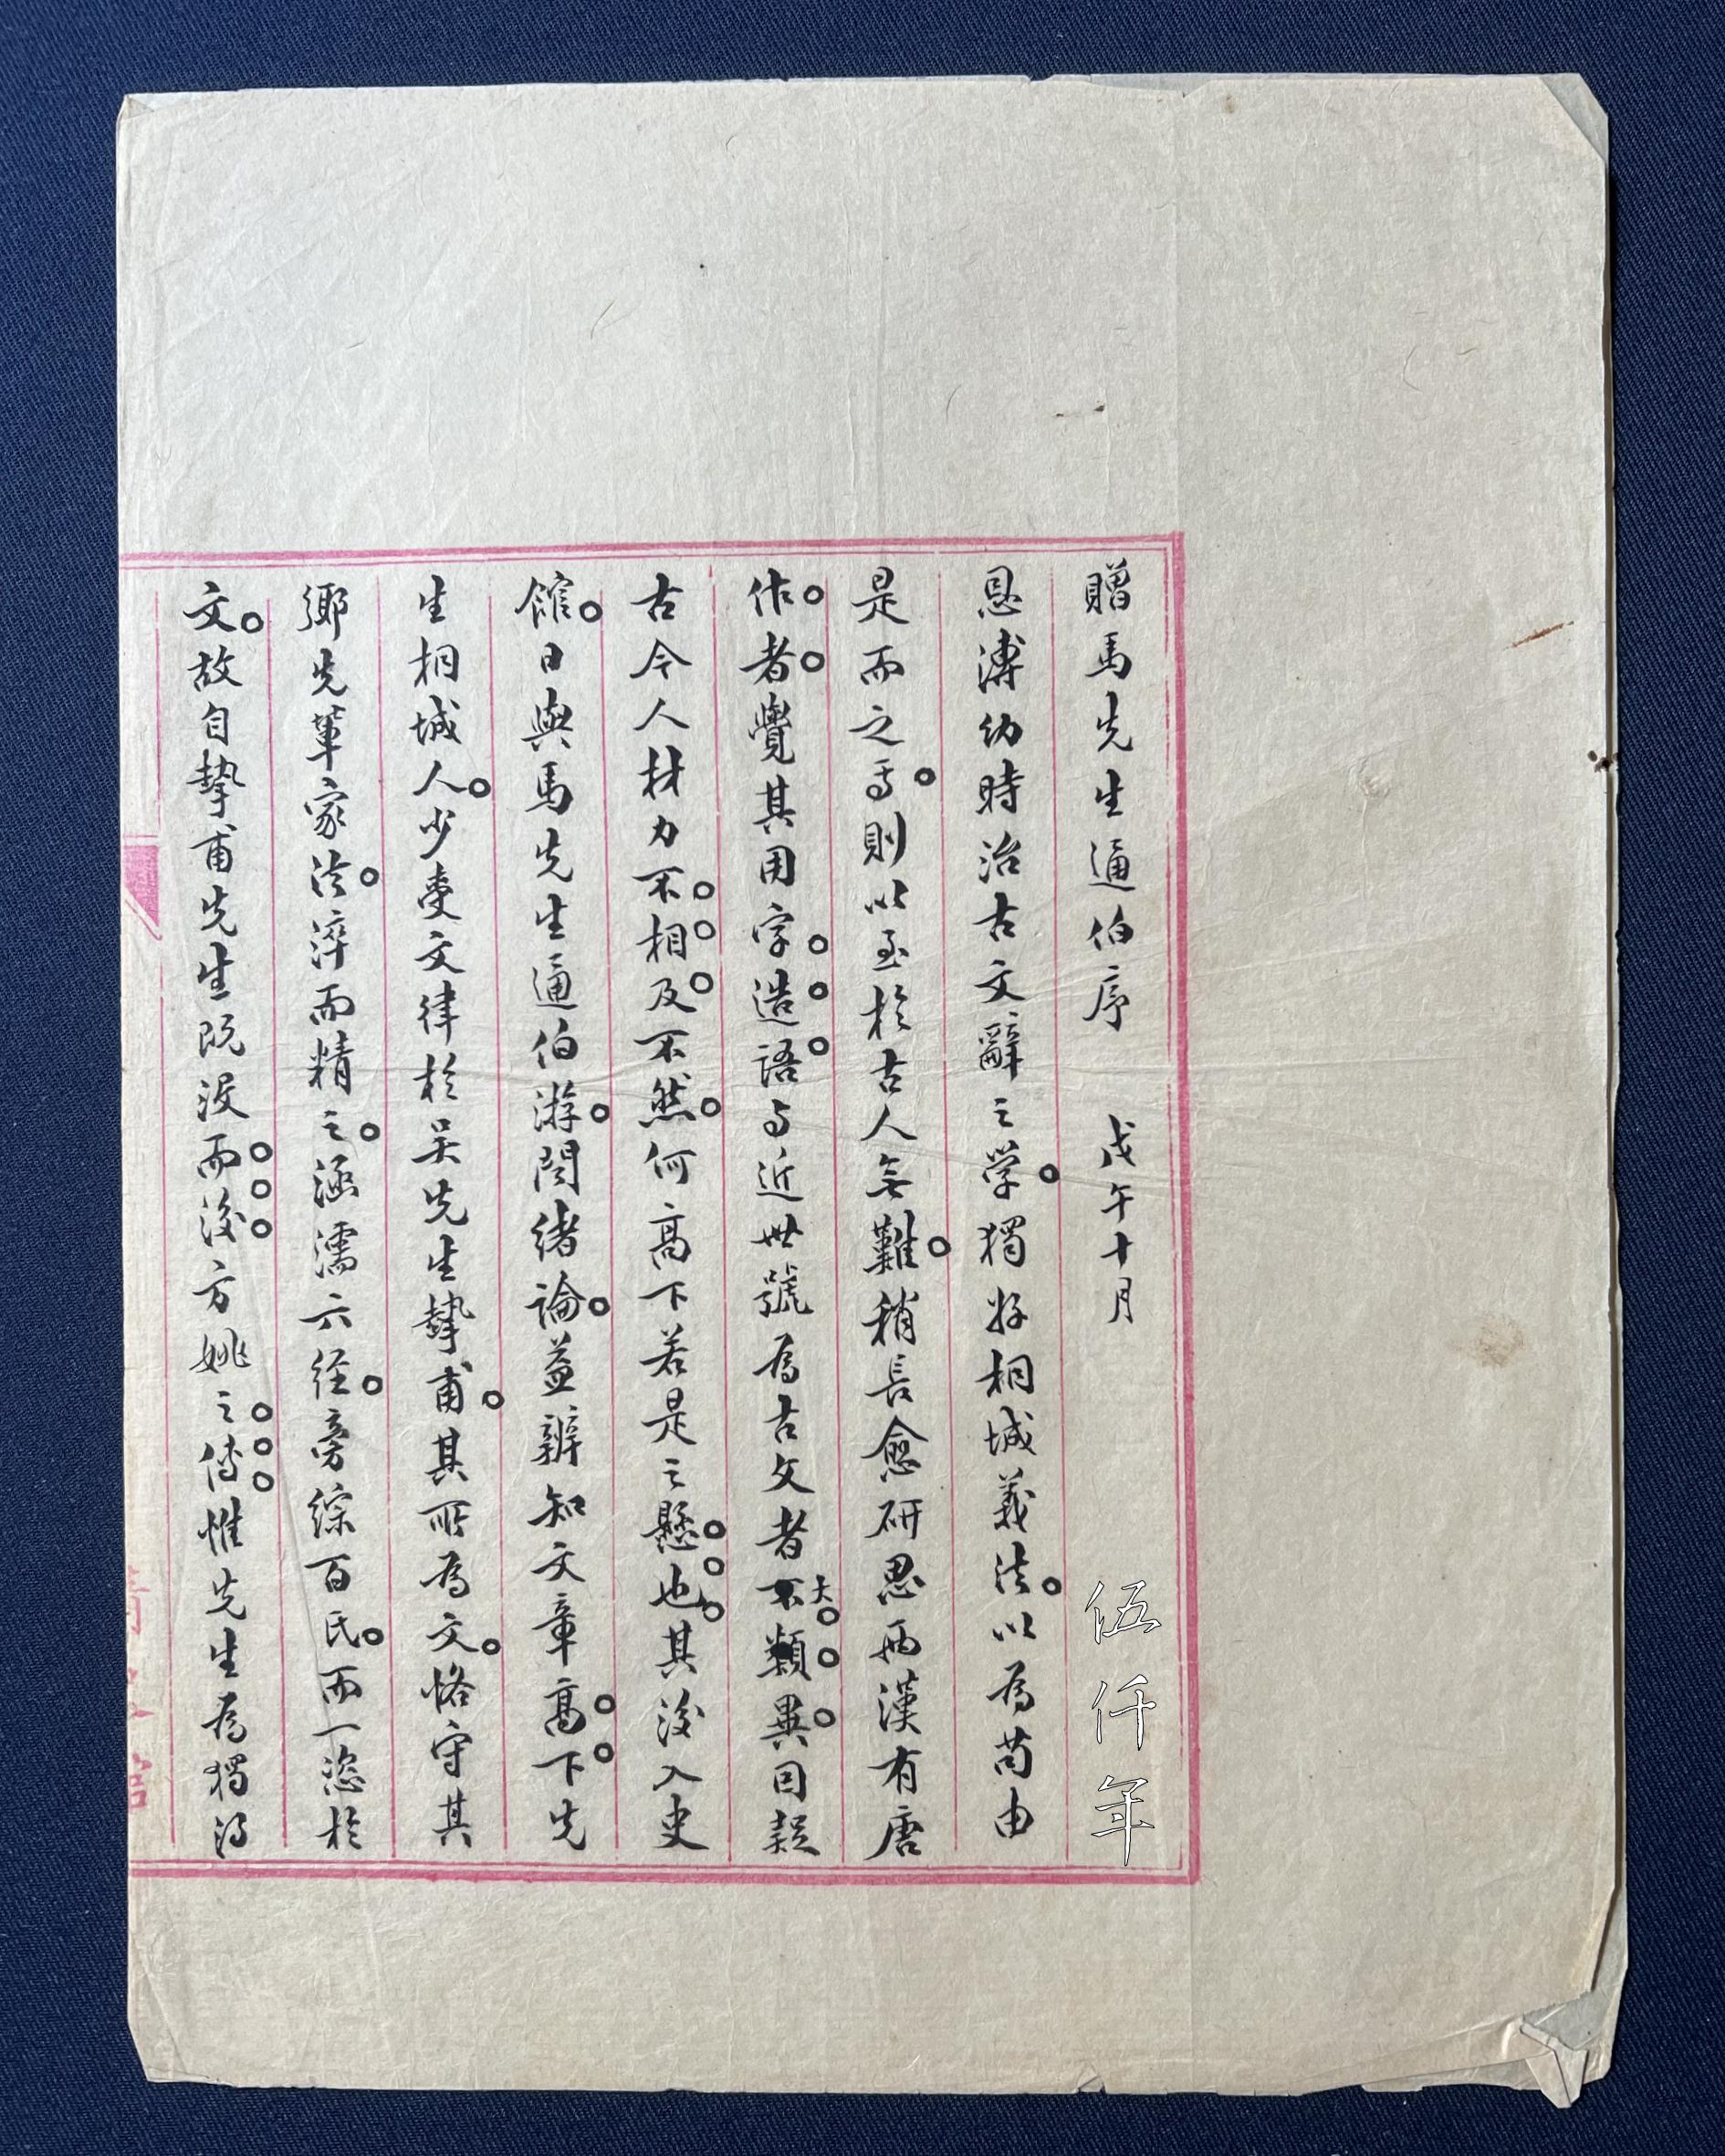 贈馬先生通伯序 戊午十月 伍仟年
恩溥幼時治古文辭之学獨好桐城義法以為苟由
是而之焉則以至於古人無難稍長愈研思兩漢有唐
作者覺其用字造語与近世號為古文者大不類異因疑
古今人材力不相及不然何高下若是之懸也其後入史
館日與馬先生通伯游聞緒論益辨知文章高下先
生桐城人少受文律於吴先生摯甫其所為文恪守其
鄉先輩家法淬而精之涵濡六经旁綜百氏而一恣於
文故自摯甫先生既没而後方姚之傳惟先生為獨得